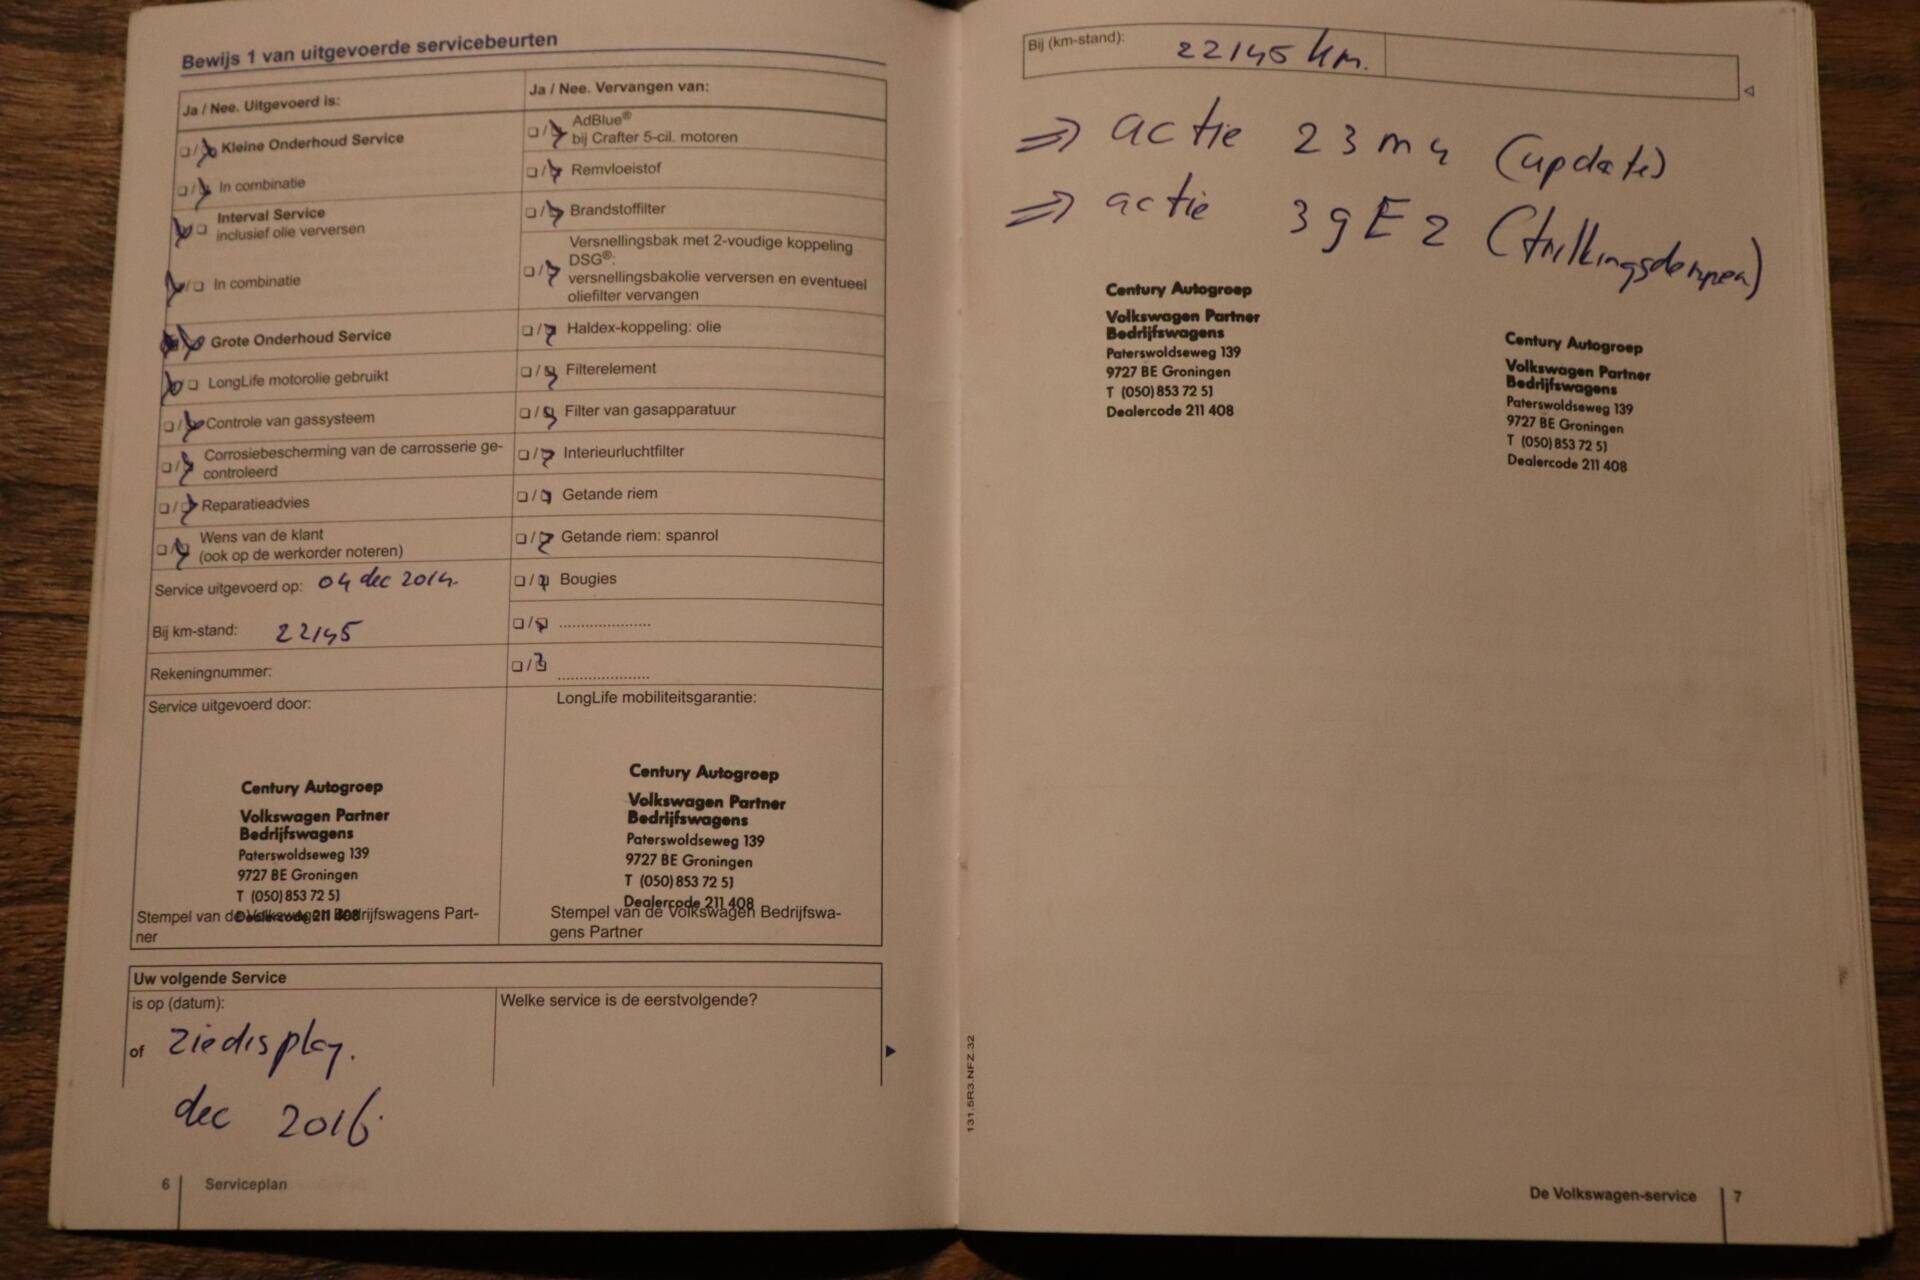 Bewijs 1 van uitgevoerde servicebeurten
Ja / Nee. Uitgevoerd is:
Kleine Onderhoud Service
In combinatie
Interval Service
inclusief olie verversen
In combinatie
Grote Onderhoud Service
LongLife motorolie gebruikt
Controle van gassysteem
Corrosiebescherming van de carrosserie ge-
controleerd
Reparatieadvies
Wens van de klant
(ook op de werkorder noteren)
Service uitgevoerd op: 04 dec 2014.
Bij km-stand: 22145
Rekeningnummer:
Ja / Nee. Vervangen van:
AdBlue®
bij Crafter 5-cil. motoren
Remvloeistof
Brandstoffilter
Versnellingsbak met 2-voudige koppeling
DSG®:
versnellingsbakolie verversen en eventueel
oliefilter vervangen
Haldex-koppeling: olie
Filterelement
Filter van gasapparatuur
Interieurluchtfilter
Getande riem
Getande riem: spanrol
Bougies
.....................
.....................
Service uitgevoerd door:
Century Autogroep
Volkswagen Partner
Bedrijfswagens
Paterswoldseweg 139
9727 BE Groningen
T (050) 853 72 51
Dealercode 211 408
Stempel van de Volkswagen Bedrijfswagens Part-
ner
LongLife mobiliteitsgarantie:
Century Autogroep
Volkswagen Partner
Bedrijfswagens
Paterswoldseweg 139
9727 BE Groningen
T (050) 853 72 51
Dealercode 211 408
Stempel van de Volkswagen Bedrijfswa-
gens Partner
Uw volgende Service
is op (datum):
of zie display.
dec 2016.
Welke service is de eerstvolgende?
6 Serviceplan
Bij (km-stand): 22145 km.
⇒ actie 23m4 (update)
⇒ actie 39E2 (trillingsdempen)
Century Autogroep
Volkswagen Partner
Bedrijfswagens
Paterswoldseweg 139
9727 BE Groningen
T (050) 853 72 51
Dealercode 211 408
Century Autogroep
Volkswagen Partner
Bedrijfswagens
Paterswoldseweg 139
9727 BE Groningen
T (050) 853 72 51
Dealercode 211 408
131.5R3.NFZ.32
De Volkswagen-service 7